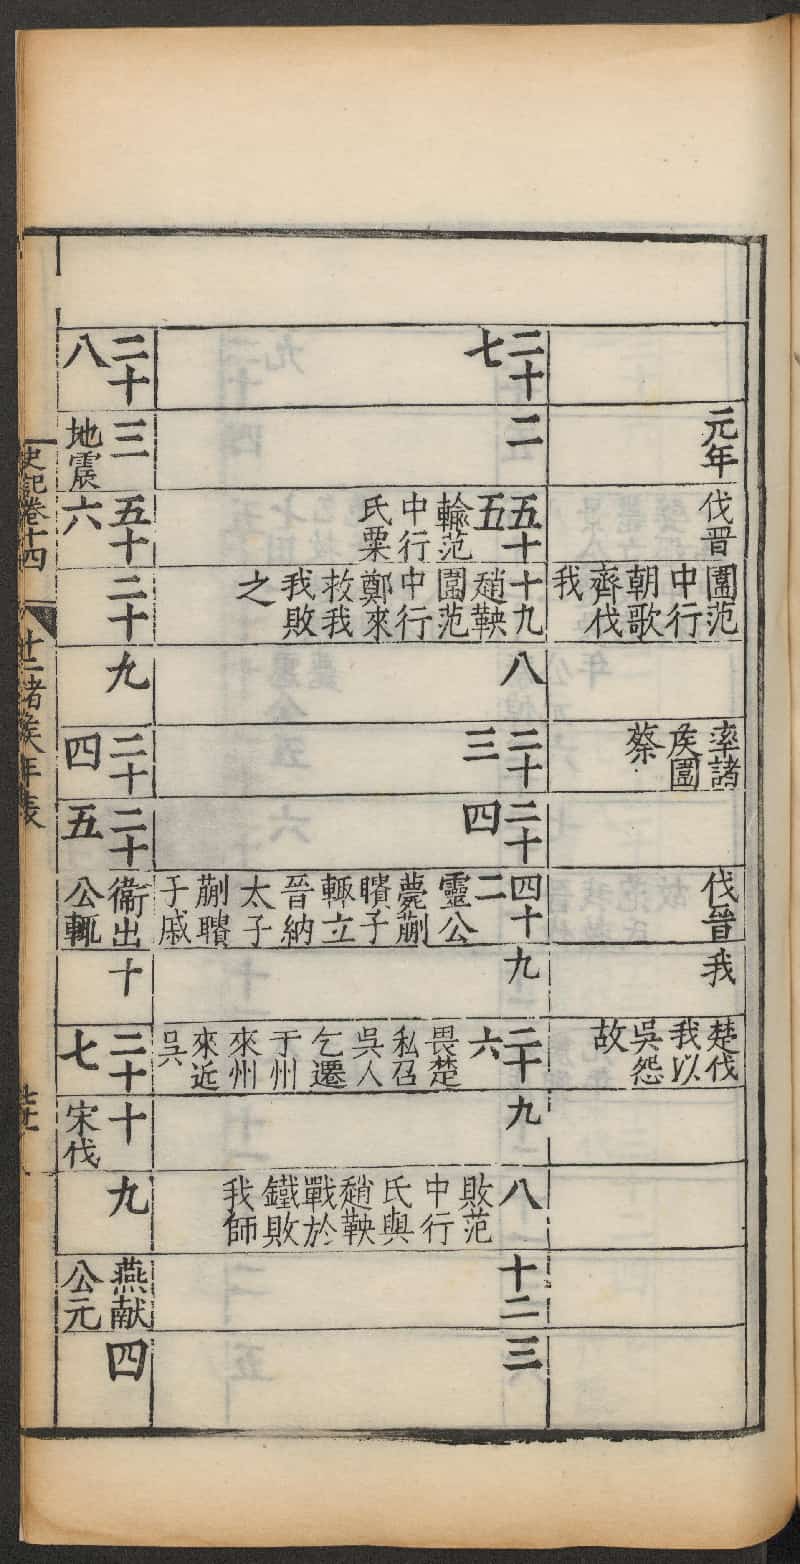 元年
伐晉
圍范中行朝歌齊伐我
率諸侯圍蔡
伐晉
我
楚伐我以吳怨故
二十七
二
五十五 輸范中行氏粟
十九 趙鞅圍范中行鄭來救我敗之
八
二十三
二十四
四十二 靈公薨蒯聵子輒立晉納太子蒯聵于戚
九
二十六 畏楚私召吳人乞遷于州來州來近吳
九
八 敗范中行氏與趙鞅戰於鐵敗我師
十二
三
二十八
三 地震
五十六
二十
九
二十四
二十五
衛出公輒
十
二十七
十 宋伐
九
燕献公元
四
史記卷十四
十二諸侯年表